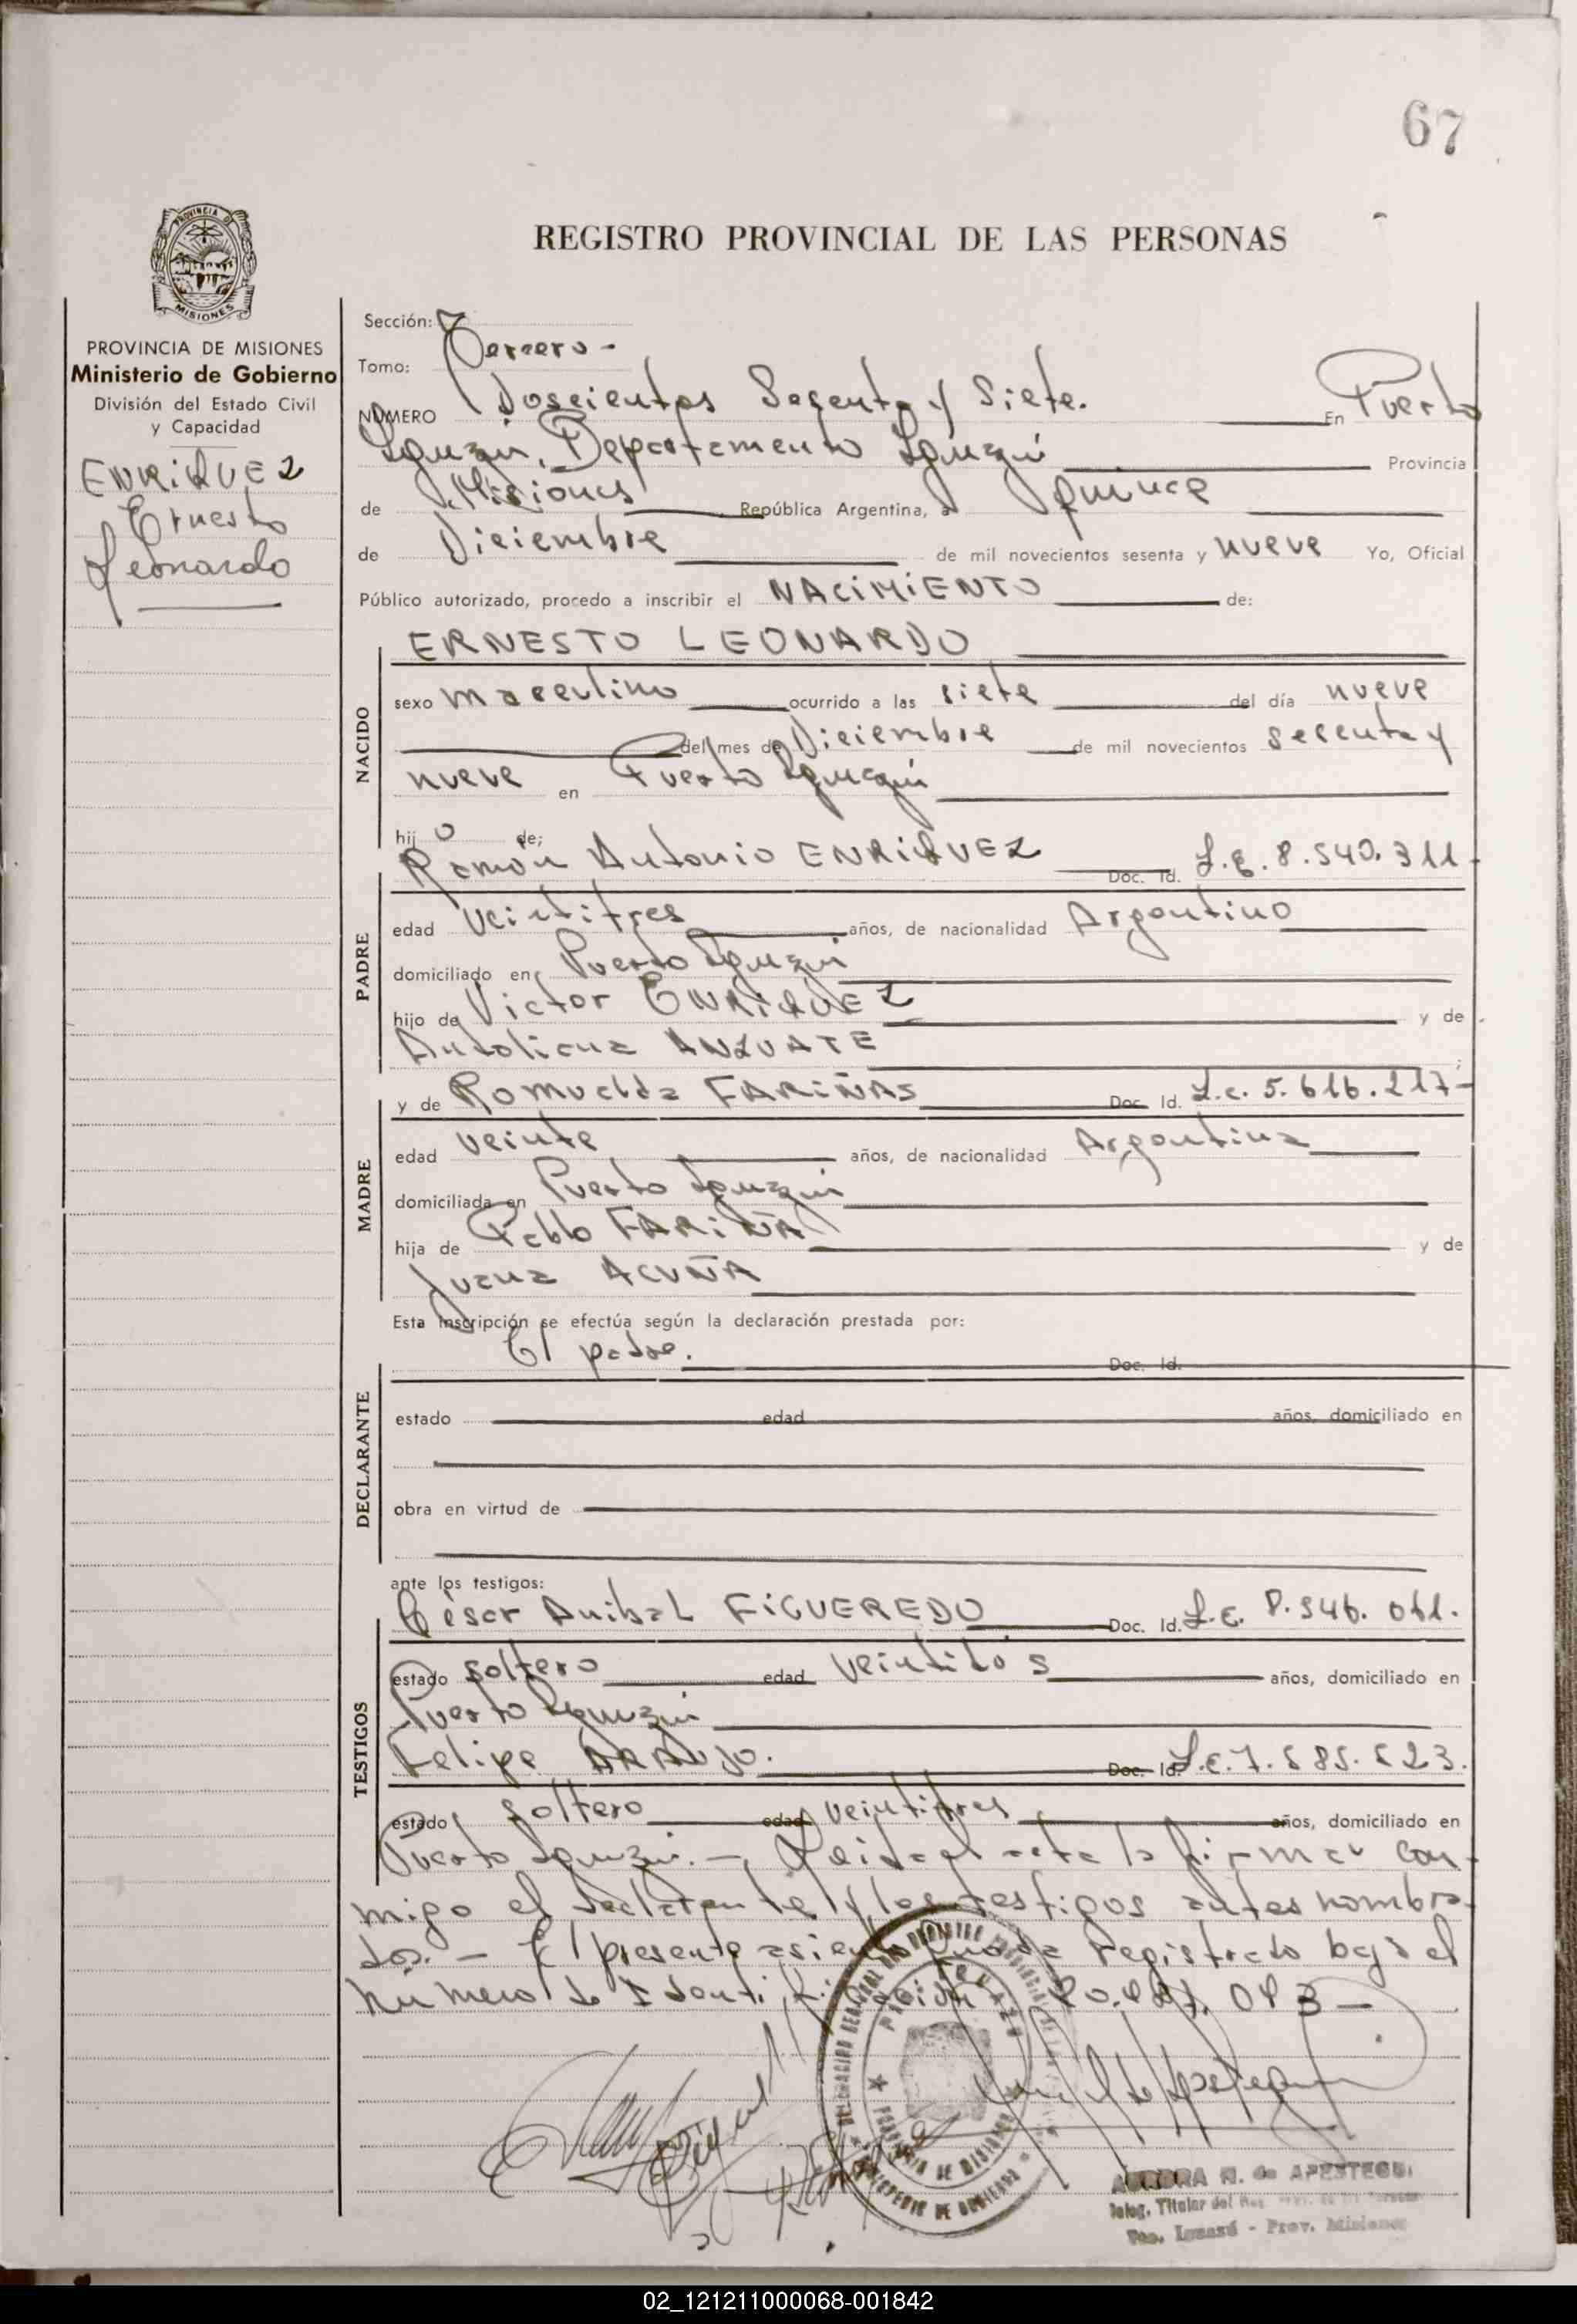 67
REGISTRO PROVINCIAL DE LAS PERSONAS
MISIONES
PROVINCIA DE MISIONES
Ministerio de Gobierno
División del Estado Civil
y Capacidad
ENRIQUEZ
Ernesto
Leonardo
Sección:
Tomo: Tercero -
NÚMERO Doscientos Sesenta y Siete. En Puerto
Iguazú, Departamento Iguazú Provincia
de Misiones República Argentina, a quince
de Diciembre de mil novecientos sesenta y nueve Yo, Oficial
Público autorizado, procedo a inscribir el NACIMIENTO de:
ERNESTO LEONARDO
NACIDO
sexo masculino ocurrido a las siete del día nueve
del mes de Diciembre de mil novecientos sesenta y
nueve en Puerto Iguazú
hijo de:
PADRE
Ramón Antonio ENRIQUEZ Doc. Id. L.E. 8.540.311-
edad veintitres años, de nacionalidad Argentino
domiciliado en Puerto Iguazú
hijo de Victor ENRIQUEZ y de
ANZUATE
MADRE
y de Romualda FARIÑAS Doc. Id. L.C. 5.616.217-
edad veinte años, de nacionalidad Argentina
domiciliada en Puerto Iguazú
hija de Pablo FARIÑA y de
Juana ACUÑA
Esta inscripción se efectúa según la declaración prestada por:
DECLARANTE
El padre. Doc. Id.
estado edad años, domiciliado en
obra en virtud de
ante los testigos:
TESTIGOS
César Anibal FIGUEREDO Doc. Id. L.E. 8.546.061.
estado soltero edad veintidós años, domiciliado en
Puerto Iguazú
Felipe ARAUJO. Doc. Id. L.E. 7.585.523.
estado soltero edad veintitres años, domiciliado en
Puerto Iguazú. - Leida el acta la firman con-
migo el declarante y los testigos antes nombra-
dos. - El presente asiento queda registrado bajo el
número de Identificación 043 -
PROVINCIA DE MISIONES
AURORA N. de APESTEGUI
Deleg. Titular del
Pto. Iguazú - Prov. Misiones
02_121211000068-001842